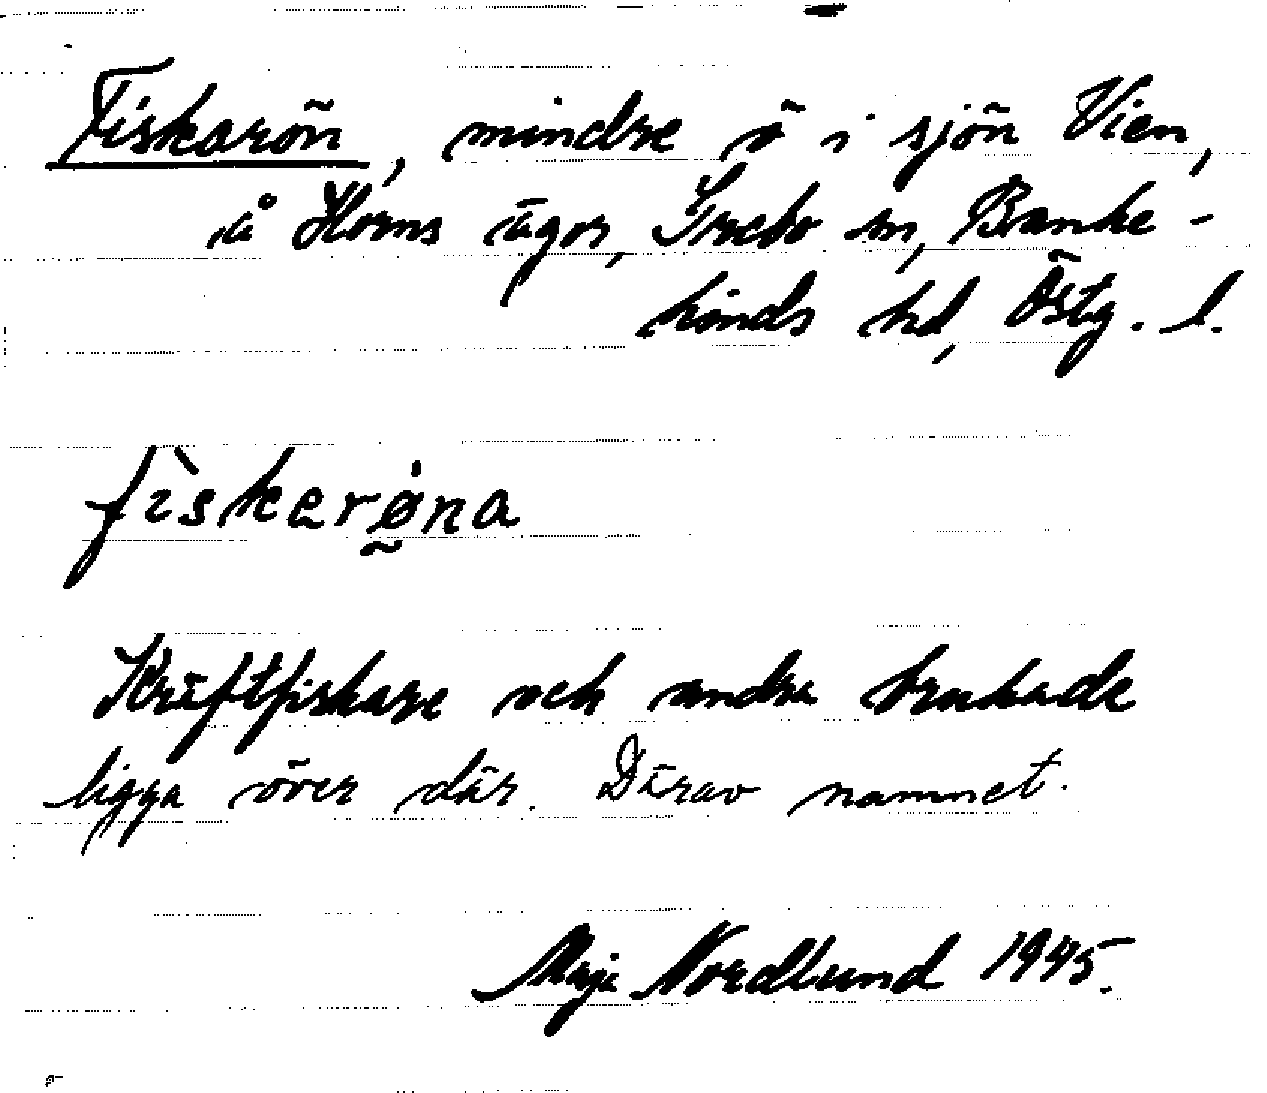 Fiskarön, mindre ö i sjön Vien,
å Horns ägor, Grebo sn, Banke-
kinds hd, Östg. l.
fìskerǿ̰na
Kräftfiskare och andra brukade
ligga över där. Därav namnet.
Maja Nordlund 1945.